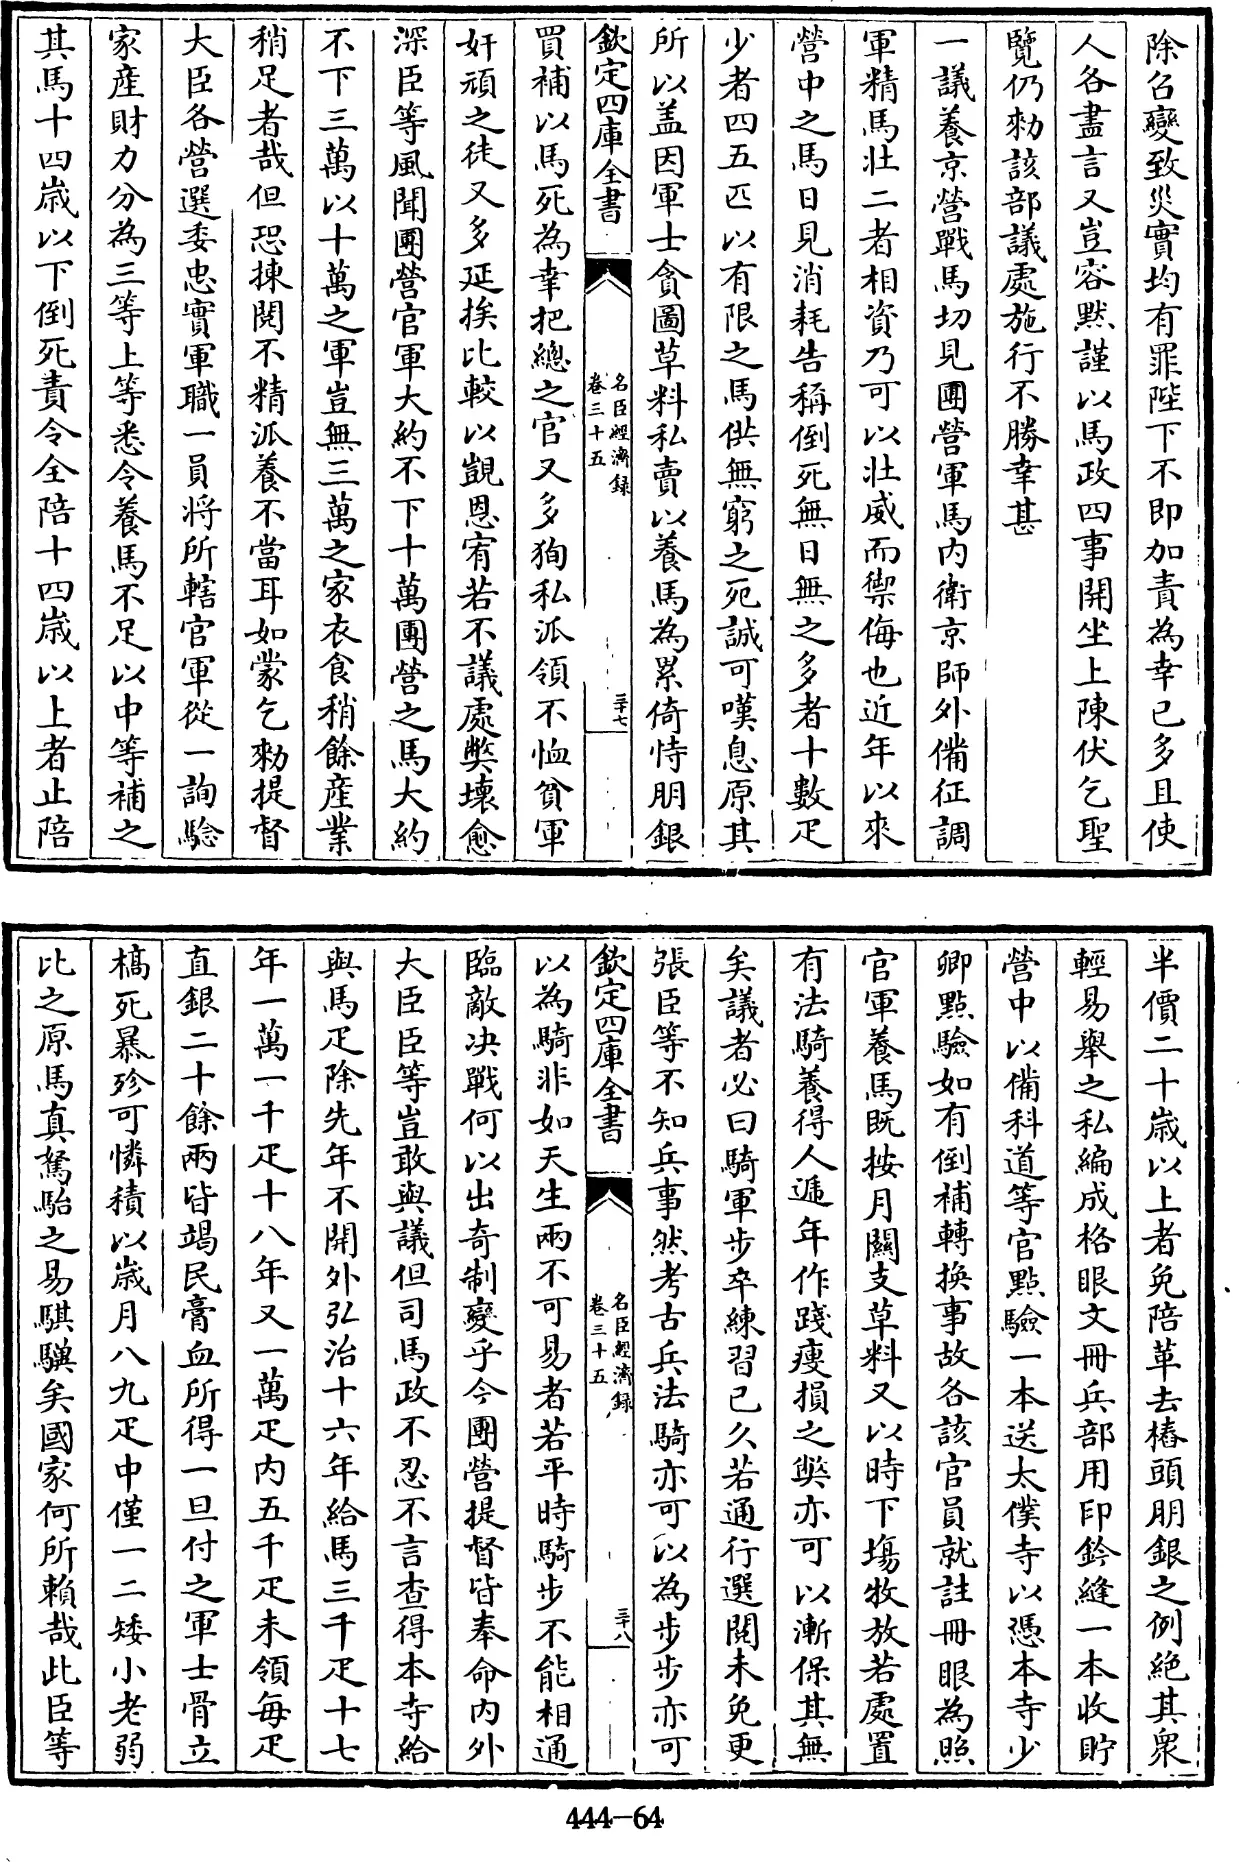 除召變致災實均有罪陛下不即加責為幸已多且使
人各盡言又豈容默謹以馬政四事開坐上陳伏乞聖
覽仍勅該部議處施行不勝幸甚
一議養京營戰馬切見團營軍馬内衛京師外備征調
軍精馬壯二者相資乃可以壯威而禦侮也近年以來
營中之馬日見消耗告稱倒死無日無之多者十數疋
少者四五匹以有限之馬供無窮之死誠可嘆息原其
所以盖因軍士貪圖草料私賣以養馬為累倚恃朋銀
欽定四庫全書
名臣經濟録
卷三十五
三十七
買補以馬死為幸把總之官又多狥私派領不恤貧軍
奸頑之徒又多延挨比較以覬恩宥若不議處弊壞愈
深臣等風聞團營官軍大約不下十萬團營之馬大約
不下三萬以十萬之軍豈無三萬之家衣食稍餘産業
稍足者哉但恐揀閱不精派養不當耳如蒙乞勅提督
大臣各營選委忠實軍職一員将所轄官軍從一詢驗
家産財力分為三等上等悉令養馬不足以中等補之
其馬十四歳以下倒死責令全陪十四歳以上者止陪
半價二十歳以上者免陪革去樁頭朋銀之例絶其衆
輕易舉之私編成格眼文冊兵部用印鈐縫一本收貯
營中以備科道等官㸃驗一本送太僕寺以憑本寺少
卿㸃驗如有倒補轉換事故各該官員就註冊眼為照
官軍養馬既按月關支草料又以時下塲牧放若處置
有法騎養得人逓年作踐瘦損之弊亦可以漸保其無
矣議者必曰騎軍步卒練習已久若通行選閱未免更
張臣等不知兵事然考古兵法騎亦可以為步步亦可
欽定四庫全書
名臣經濟録
卷三十五
三十八
以為騎非如天生兩不可易者若平時騎步不能相通
臨敵决戰何以出奇制變乎今團營提督皆奉命内外
大臣臣等豈敢與議但司馬政不忍不言查得本寺給
與馬疋除先年不開外弘治十六年給馬三千疋十七
年一萬一千疋十八年又一萬疋内五千疋未領每疋
直銀二十餘兩皆竭民膏血所得一旦付之軍士骨立
槁死暴殄可憐積以歳月八九疋中僅一二矮小老弱
比之原馬真駑駘之易騏驥矣國家何所賴哉此臣等
444-64